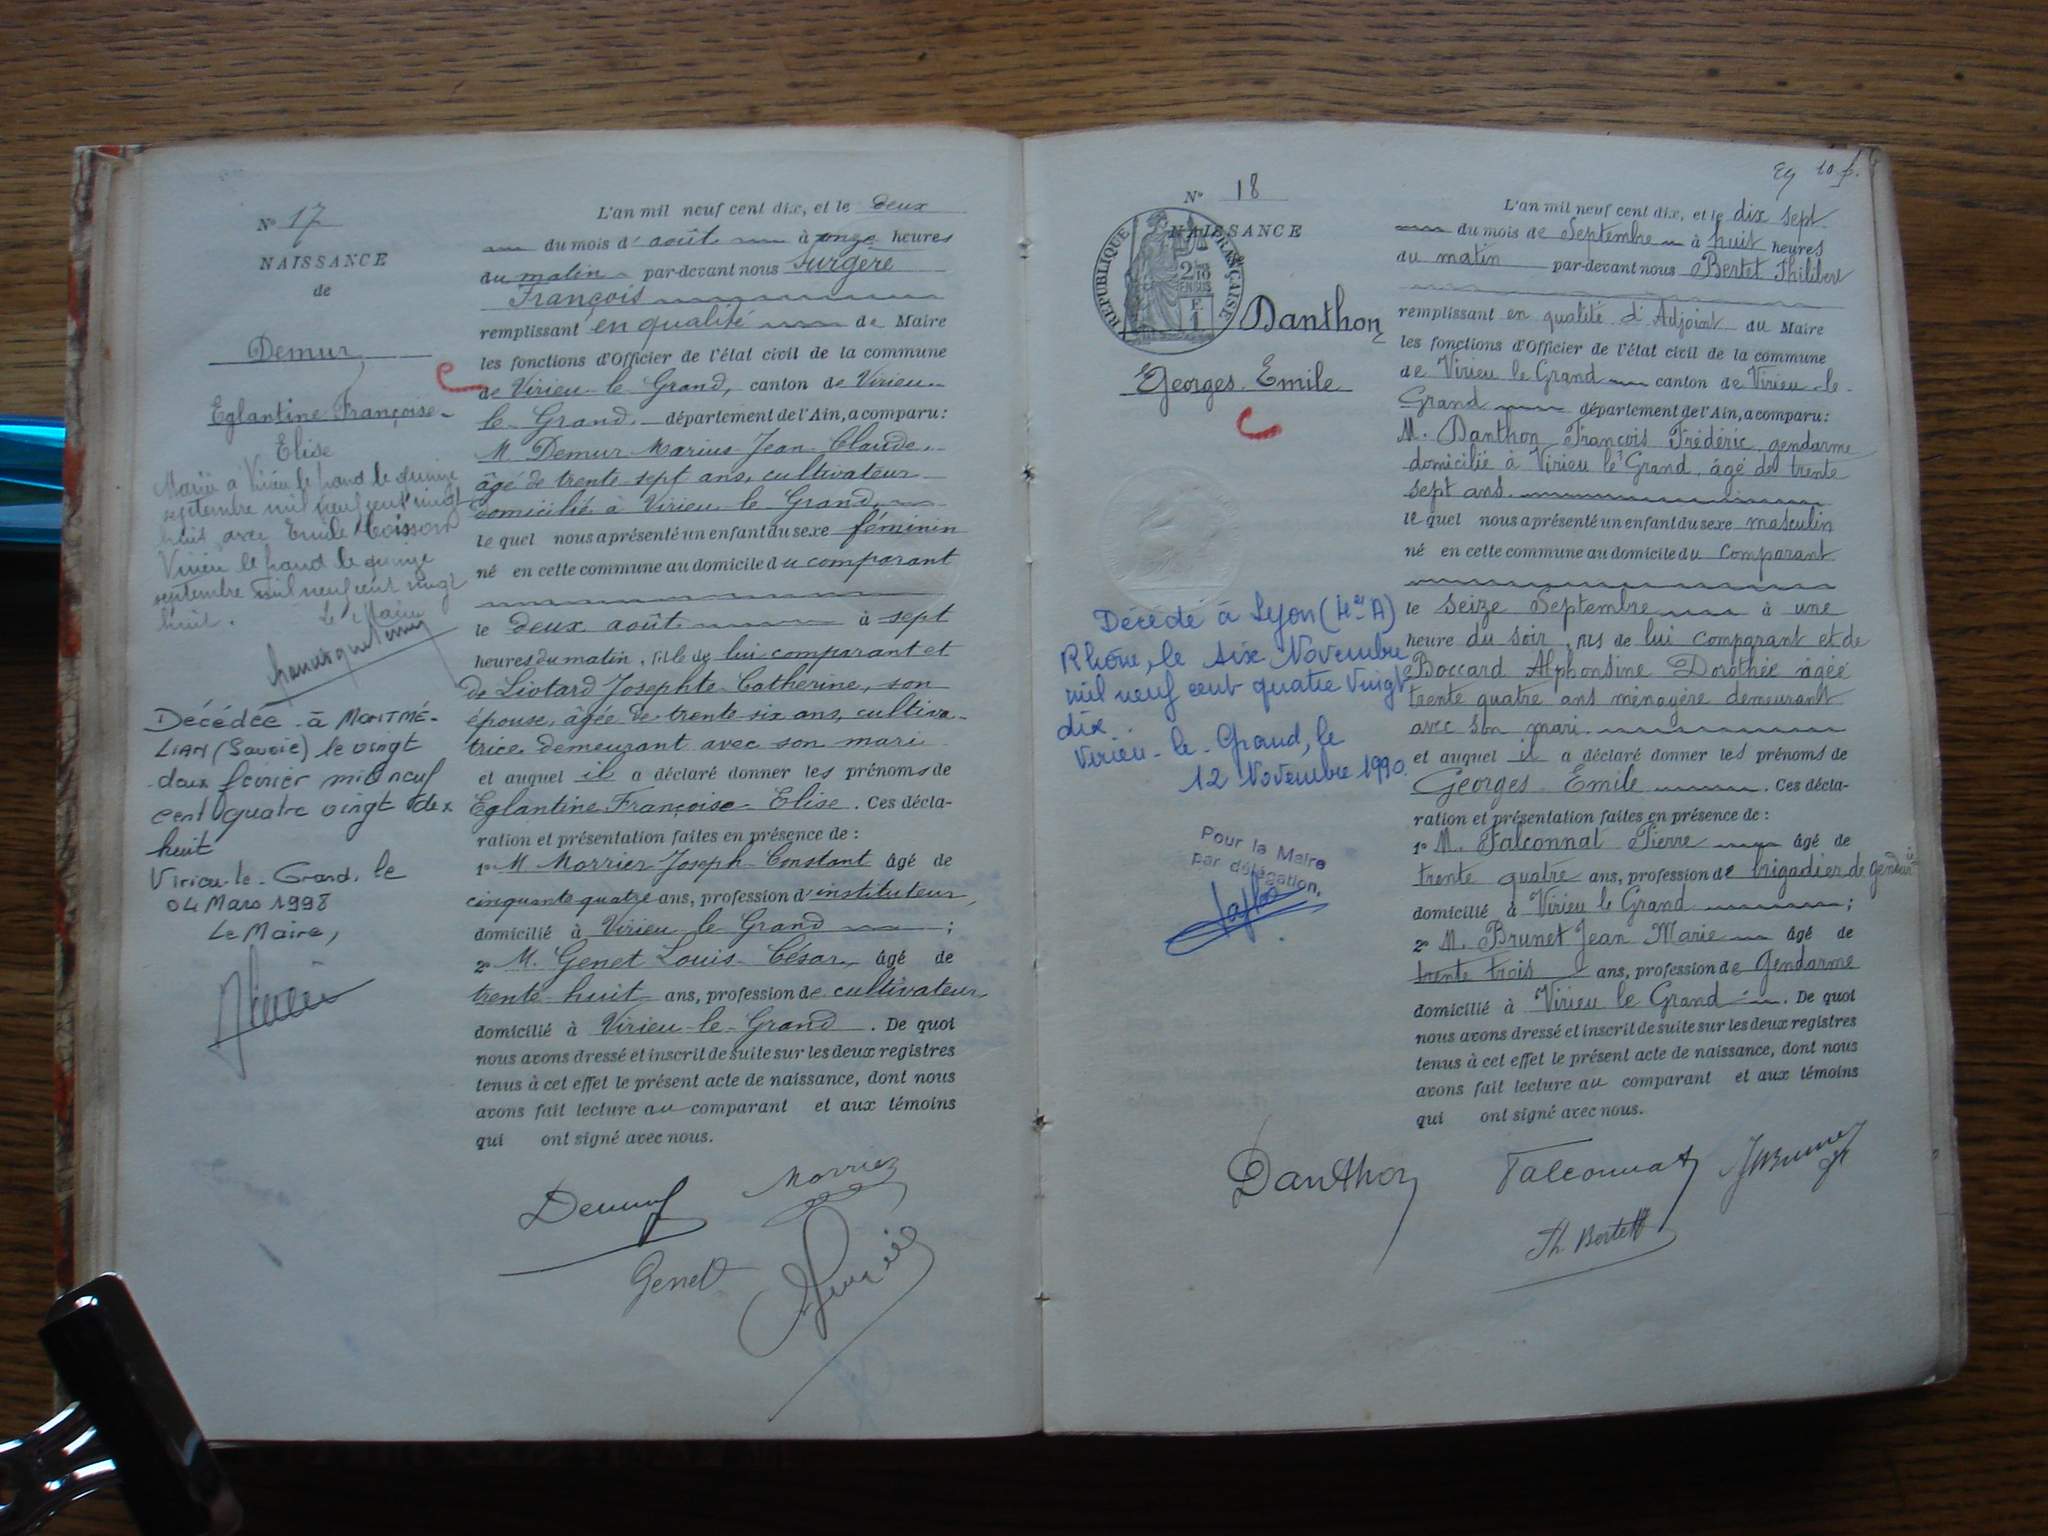 N° 17
NAISSANCE
de
Demur
Eglantine Françoise
Elise
Mariée à Virieu le Grand le quinze
septembre mil neuf cent vingt
huit avec Emile
Virieu le Grand le quinze
septembre mil neuf cent vingt
huit. Le Maire
Décédée à MONTMÉ-
LIAN (Savoie) le vingt
deux février mil neuf
cent quatre vingt dix
huit
Virieu-le-Grand, le
04 Mars 1998
Le Maire,
L'an mil neuf cent dix, et le deux
du mois d'août à onze heures
du matin par-devant nous Surgère
François
remplissant en qualité de Maire
les fonctions d'Officier de l'état civil de la commune
de Virieu-le-Grand, canton de Virieu-
le-Grand, département de l'Ain, a comparu:
M. Demur Marius Jean Claude,
âgé de trente sept ans, cultivateur
domicilié à Virieu le Grand,
le quel nous a présenté un enfant du sexe féminin
né en cette commune au domicile du comparant
le deux août à sept
heures du matin, fille de lui comparant et
de Liotard Josephte Catherine, son
épouse, âgée de trente six ans, cultiva-
trice demeurant avec son mari
et auquel il a déclaré donner les prénoms de
Eglantine Françoise Elise. Ces décla-
ration et présentation faites en présence de :
1° M Morrier Joseph Constant âgé de
cinquante quatre ans, profession d'instituteur,
domicilié à Virieu le Grand ;
2° M. Genet Louis César, âgé de
trente huit ans, profession de cultivateur,
domicilié à Virieu-le-Grand. De quoi
nous avons dressé et inscrit de suite sur les deux registres
tenus à cet effet le présent acte de naissance, dont nous
avons fait lecture au comparant et aux témoins
qui ont signé avec nous.
Demur Morrier
Genet
Eg 10 f.
N° 18
NAISSANCE
REPUBLIQUE FRANÇAISE
Danthon
Georges Emile
Décédé à Lyon (4e A)
Rhône, le six Novembre
mil neuf cent quatre vingt
dix.
Virieu-le-Grand, le
12 Novembre 1990.
Pour le Maire
par délégation,
L'an mil neuf cent dix, et le dix sept
du mois de Septembre à huit heures
du matin par-devant nous Bertet Philibert
remplissant en qualité d'Adjoint du Maire
les fonctions d'Officier de l'état civil de la commune
de Virieu le Grand canton de Virieu-le-
Grand département de l'Ain, a comparu:
M. Danthon François Frédéric, gendarme
domicilié à Virieu le Grand, âgé de trente
sept ans.
le quel nous a présenté un enfant du sexe masculin
né en cette commune au domicile du Comparant
le seize Septembre à une
heure du soir, fils de lui comparant et de
Boccard Alphonsine Dorothée âgée
trente quatre ans ménagère demeurant
avec son mari.
et auquel il a déclaré donner les prénoms de
Georges Emile. Ces décla-
ration et présentation faites en présence de :
1° M. Falconnat Pierre âgé de
trente quatre ans, profession de brigadier de gendarie
domicilié à Virieu le Grand ;
2° M. Brunet Jean Marie âgé de
trente trois ans, profession de Gendarme
domicilié à Virieu le Grand. De quoi
nous avons dressé et inscrit de suite sur les deux registres
tenus à cet effet le présent acte de naissance, dont nous
avons fait lecture au comparant et aux témoins
qui ont signé avec nous.
Danthon Falconnat JMBrunet
Th. Bertet